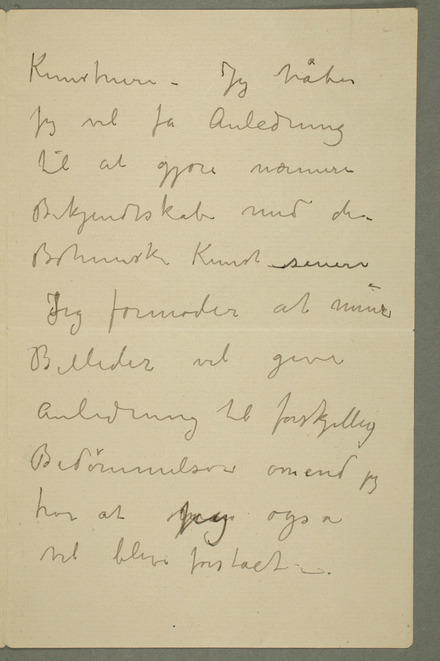 Kunstnere – Jeg håber
jeg vel få Anledning
til at gjøre nærmere
Bekjendtskab med den
Böhmiske Kunst senere
Jeg formoder at mine
Billeder vel give
Anledning til forskjellig
Bedømmelse omend jeg
tror at jeg også
vil blive forstaaet –.